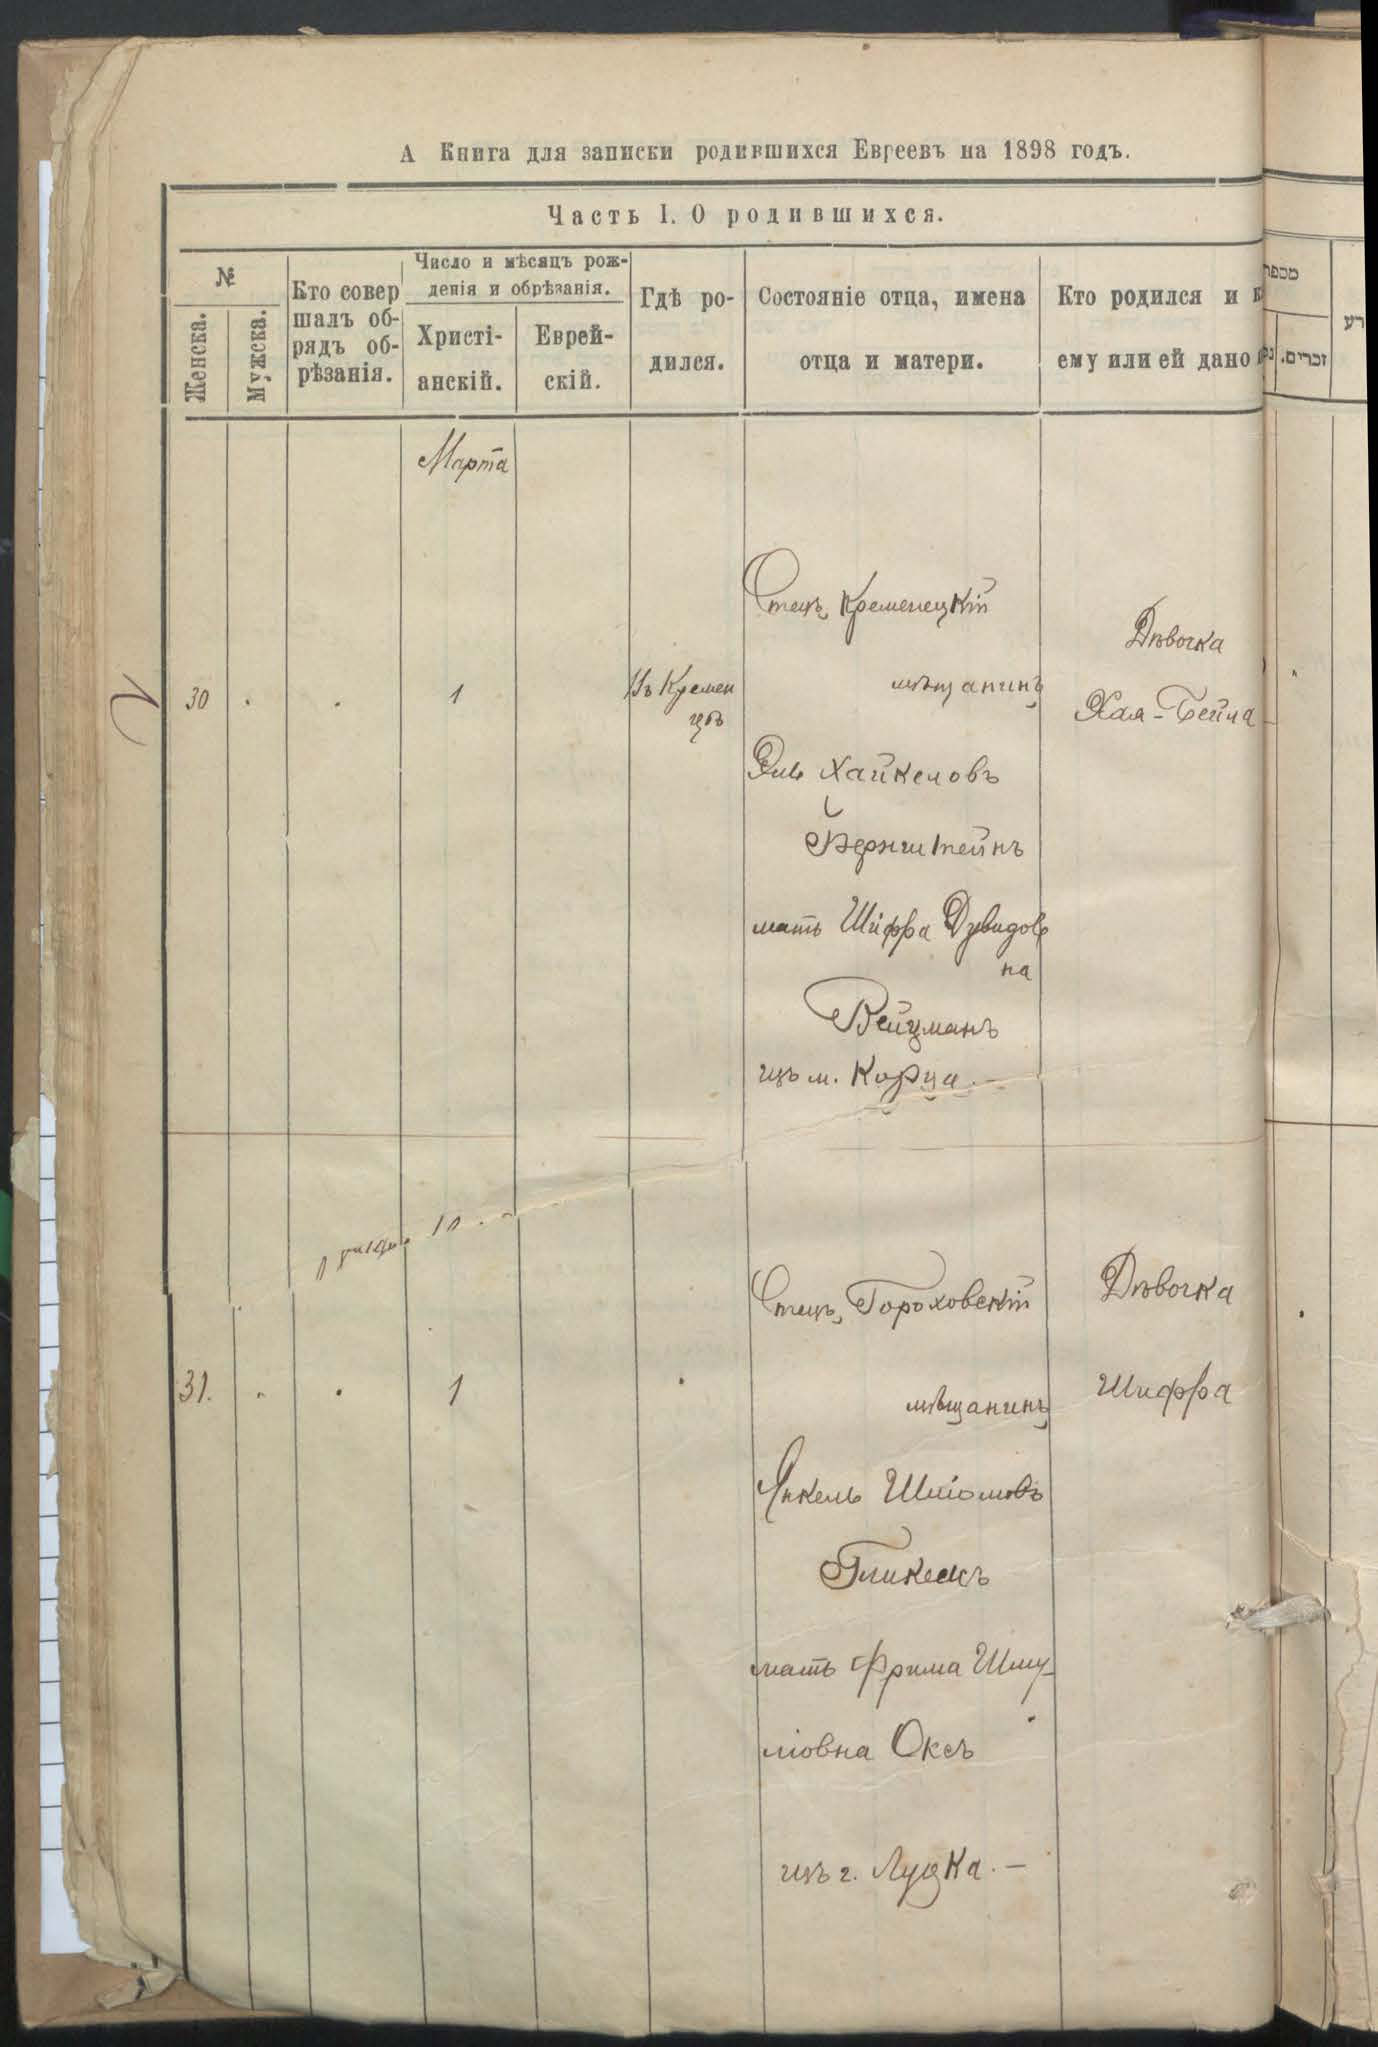 А Книга для записки родившихся Евреевъ на 1898 годъ.
Часть I. О родившихся.
№
Женска.
Мужска.
Кто совер
шалъ об-
рядъ об-
рѣзанія.
Число и мѣсяцъ рож-
денія и обрѣзанія.
Христі-
анскій.
Еврей-
скій.
Гдѣ ро-
дился.
Состояніе отца, имена
отца и матери.
Кто родился и к
ему или ей дано
זכרים.
Марта
30
1
Въ Кремен
цѣ
Отецъ Кременецкій
мѣщанинъ
Эль Хайкеловъ
Бернштейнъ
мать Шифра Дувидов
на
Вейцманъ
изъ м. Корца. —
Дѣвочка
Хая-Бейла
31.
1
Отецъ, Гороховскій
мѣщанинъ
Янкель Шліомовъ
мать Фрима Шму-
ліовна Оксъ
изъ г. Луцка. —
Дѣвочка
Шифра